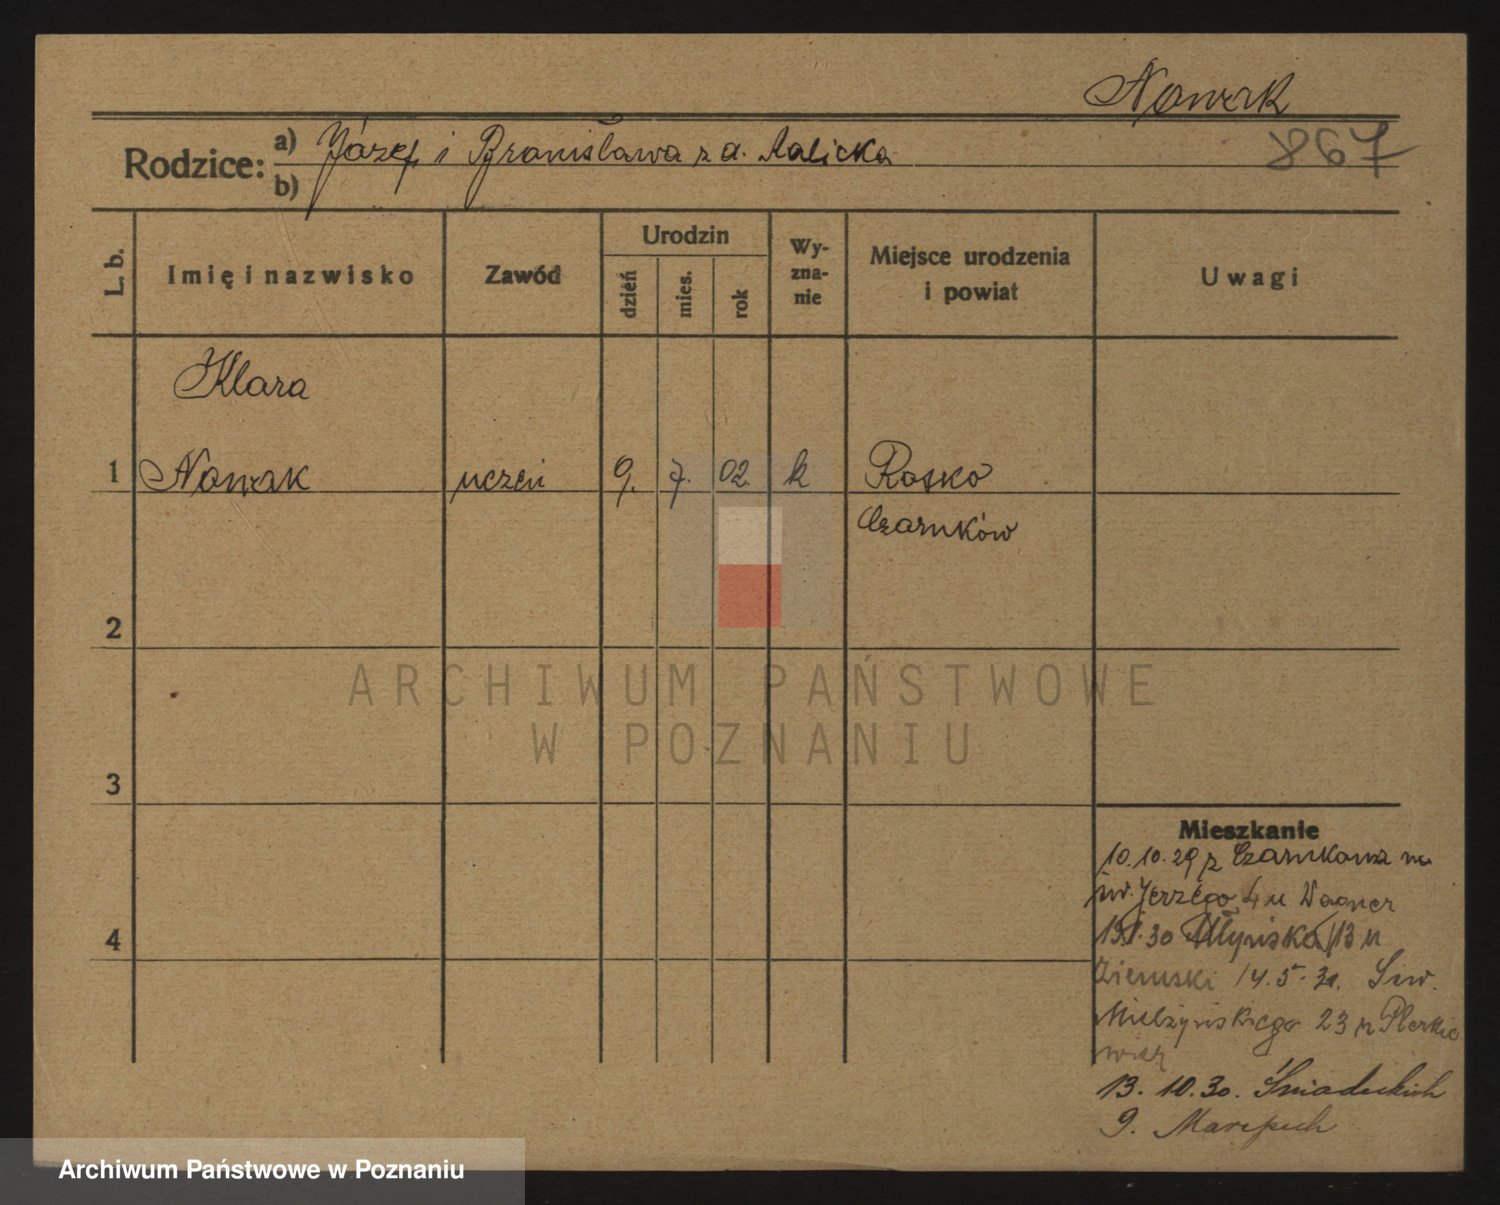 Nowak
867
Rodzice: a) Józef i Bronisława z d. Kalicka
b)
L. b. Imię i nazwisko Zawód Urodzin dzień mies. rok Wy-zna-nie Miejsce urodzenia i powiat Uwagi
Klara
1 Nowak uczeń 9. 7. 02. k Rosko
Czarnków
2
3
4
ARCHIWUM PAŃSTWOWE
W POZNANIU
Mieszkanie
10.10.29 z Czarnkowa
św. Jerzego 4 u Wagner
30 Młyńska 13 u
Ziemski 14.5.30. Sew.
Mielżyńskiego 23
13. 10. 30. Śniadeckich
9.
Archiwum Państwowe w Poznaniu